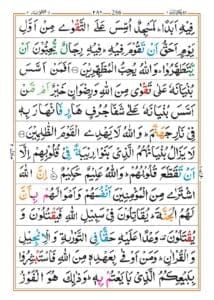 286
فِيْهِ اَبَدًا ؕ لَمَسْجِدٌ اُسِّسَ عَلَى التَّقْوٰى مِنْ اَوَّلِ
يَوْمٍ اَحَقُّ اَنْ تَقُوْمَ فِيْهِ ؕ فِيْهِ رِجَالٌ يُّحِبُّوْنَ اَنْ
يَّتَطَهَّرُوْا ؕ وَاللّٰهُ يُحِبُّ الْمُطَّهِّرِيْنَ ۝ اَفَمَنْ اَسَّسَ
بُنْيَانَهٗ عَلٰى تَقْوٰى مِنَ اللّٰهِ وَرِضْوَانٍ خَيْرٌ اَمْ مَّنْ اَسَّسَ
بُنْيَانَهٗ عَلٰى شَفَا جُرُفٍ هَارٍ فَانْهَارَ بِهٖ
فِيْ نَارِ جَهَنَّمَ ؕ وَاللّٰهُ لَا يَهْدِى الْقَوْمَ الظّٰلِمِيْنَ ۝
لَا يَزَالُ بُنْيَانُهُمُ الَّذِيْ بَنَوْا رِيْبَةً فِيْ قُلُوْبِهِمْ اِلَّاۤ
اَنْ تَقَطَّعَ قُلُوْبُهُمْ ؕ وَاللّٰهُ عَلِيْمٌ حَكِيْمٌ ۝ اِنَّ اللّٰهَ
اشْتَرٰى مِنَ الْمُؤْمِنِيْنَ اَنْفُسَهُمْ وَاَمْوَالَهُمْ بِاَنَّ
لَهُمُ الْجَنَّةَ ؕ يُقَاتِلُوْنَ فِيْ سَبِيْلِ اللّٰهِ فَيَقْتُلُوْنَ وَ
يُقْتَلُوْنَ وَعْدًا عَلَيْهِ حَقًّا فِي التَّوْرٰىةِ وَالْاِنْجِيْلِ
وَالْقُرْاٰنِ ؕ وَمَنْ اَوْفٰى بِعَهْدِهٖ مِنَ اللّٰهِ فَاسْتَبْشِرُوْا
بِبَيْعِكُمُ الَّذِيْ بَايَعْتُمْ بِهٖ ؕ وَذٰلِكَ هُوَ الْفَوْزُ